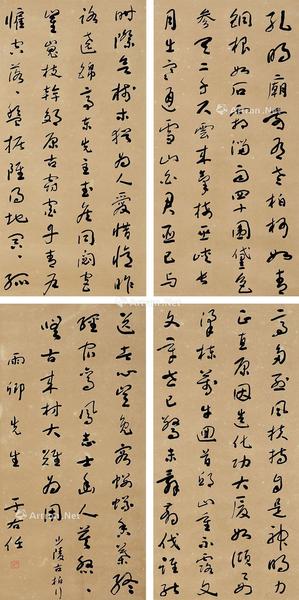 孔明廟前有老柏柯如青
銅根如石霜皮溜雨四十圍黛色
參天二千尺雲來氣接巫峽長
月出寒通雪山白君臣已與
時際會樹木猶為人愛惜憶昨
路遶錦亭東先主武侯同閟宮
崔嵬枝幹郊原古窈窕丹青戶
牖空落落盤踞雖得地冥冥孤
高多烈風扶持自是神明力
正直原因造化功大廈如傾要
梁棟萬牛回首邱山重不露文
章世已驚未辭翦伐誰能
送苦心豈免容螻蟻香葉終
經宿鸞鳳志士幽人莫怨
嗟古來材大難為用 少陵古柏行
雨卿先生 于右任